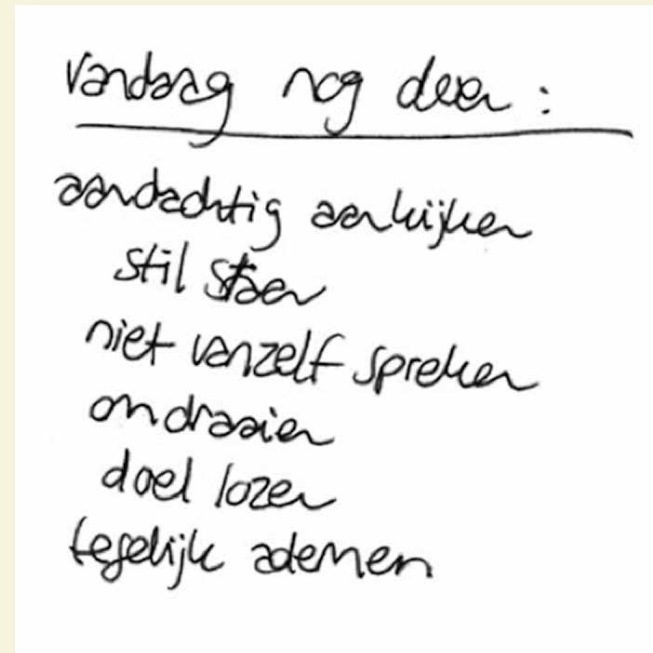 vandaag nog doen:
aandachtig aankijken
stil staan
niet vanzelf spreken
omdraaien
doel lozen
tegelijk ademen